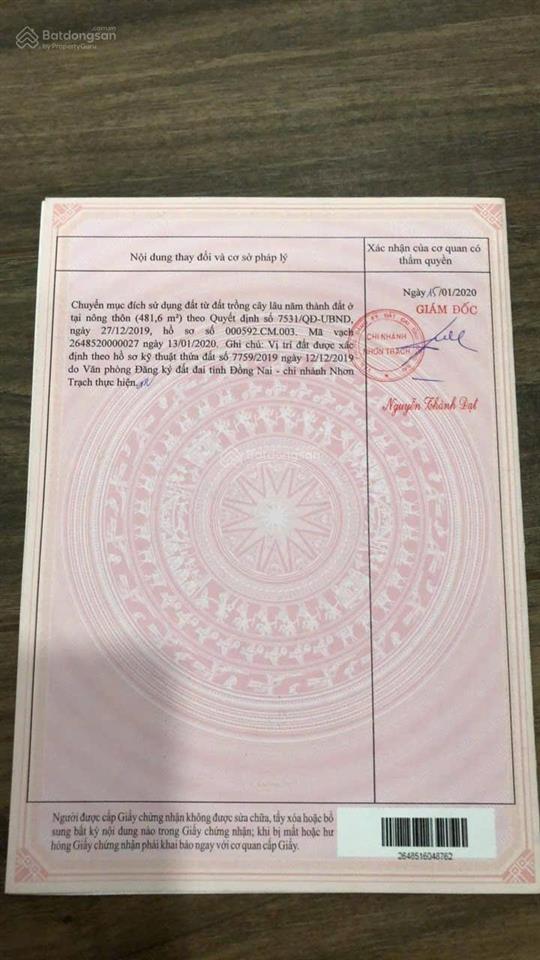 Batdongsan
.com.vn
by PropertyGuru
Nội dung thay đổi và cơ sở pháp lý
Xác nhận của cơ quan có
thẩm quyền
Chuyển mục đích sử dụng đất từ đất trồng cây lâu năm thành đất ở
tại nông thôn (481,6 m²) theo Quyết định số 7531/QĐ-UBND,
ngày 27/12/2019, hồ sơ số 000592.CM.003. Mã vạch
2648520000027 ngày 13/01/2020. Ghi chú: Vị trí đất được xác
định theo hồ sơ kỹ thuật thửa đất số 7759/2019 ngày 12/12/2019
do Văn phòng Đăng ký đất đai tỉnh Đồng Nai - chi nhánh Nhơn
Trạch thực hiện.
Ngày 15/01/2020
GIÁM ĐỐC
CHI NHÁNH
NHƠN TRẠCH
Nguyễn Thành Đạt
Batdongsan
by PropertyGuru
Người được cấp Giấy chứng nhận không được sửa chữa, tẩy xóa hoặc bổ
sung bất kỳ nội dung nào trong Giấy chứng nhận; khi bị mất hoặc hư
hỏng Giấy chứng nhận phải khai báo ngay với cơ quan cấp Giấy.
2648516048762